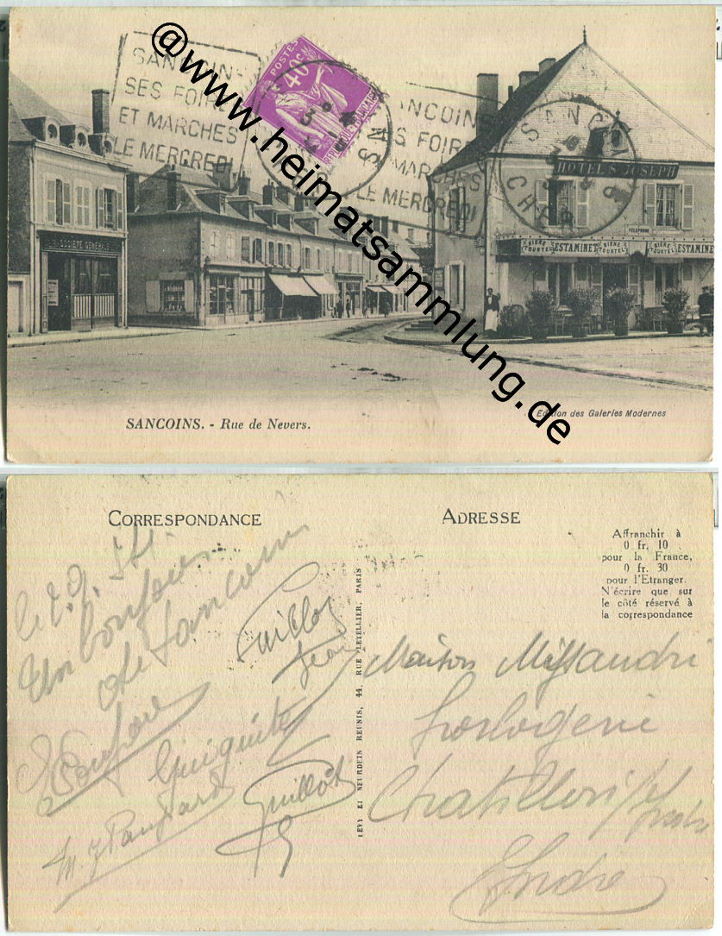 @www.heimatsammlung.de
SANCOINS
SES FOIRES
ET MARCHES
LE MERCREDI
POSTES
40c
SANCOINS
SES FOIRES
ET MARCHES
LE MERCREDI
SANCOINS
CHER
HOTEL St JOSEPH
TELEPHONE
SOCIÉTÉ GÉNÉRALE
BIÈRE ESTAMINET BIÈRE ESTAMINET
SANCOINS. - Rue de Nevers.
Edition des Galeries Modernes
CORRESPONDANCE
ADRESSE
Affranchir à
0 fr. 10
pour la France,
0 fr. 30
pour l'Etranger.
N'écrire que sur
le côté réservé à
la correspondance
LEVY ET NEURDEIN REUNIS, 44, RUE LETELLIER, PARIS
Un bonjour
de Sancoins
Guillot
Jean
Guillot
Maison Missandri
horlogerie
Chatillon s/
Indre
Indre